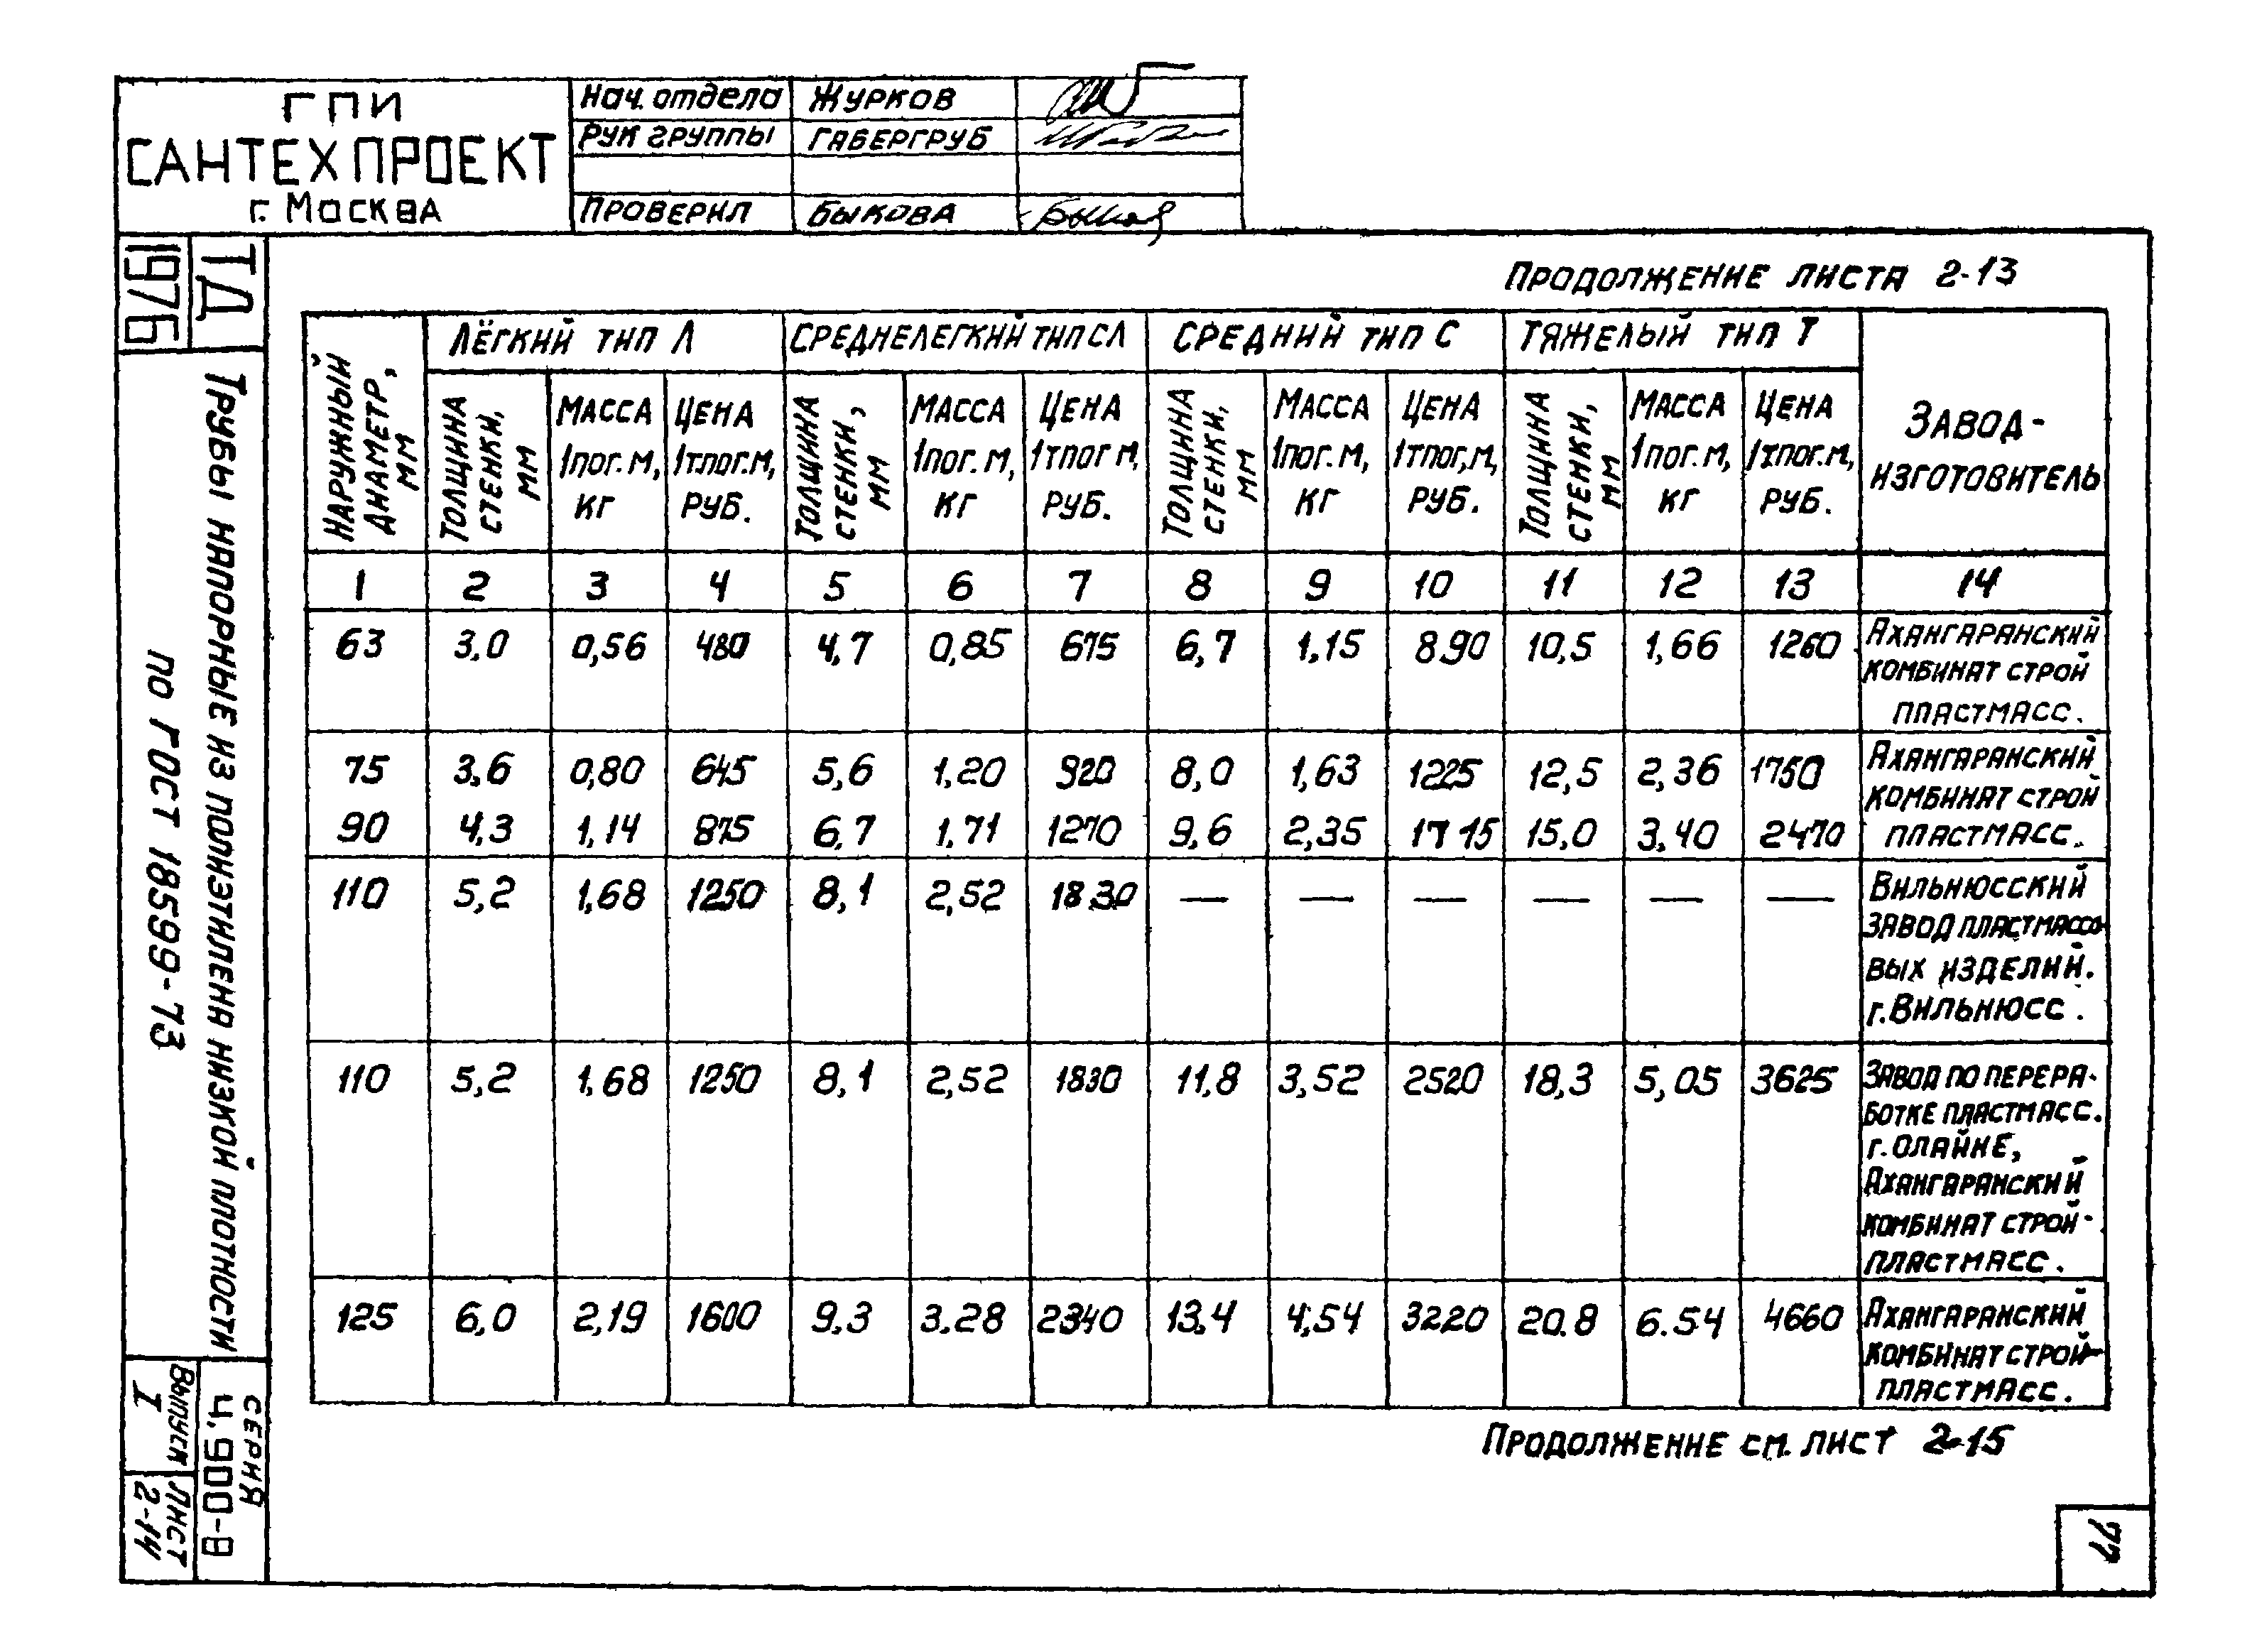 ГПИ
САНТЕХПРОЕКТ
г. Москва
Нач. отдела Журков
Рук группы Габергруб
Проверил Быкова
ТД
1976
Трубы напорные из полиэтилена низкой плотности
по ГОСТ 18599-73
Серия
4.900-8
Выпуск
I
Лист
2-14
Продолжение листа 2-13
Наружный диаметр, мм
Лёгкий тип Л
Среднелегкий тип СЛ
Средний тип С
Тяжелый тип Т
Завод-
изготовитель
Толщина стенки, мм
Масса 1пог. м, кг
Цена 1т.пог.м, руб.
Толщина стенки, мм
Масса 1пог. м, кг
Цена 1тпог м, руб.
Толщина стенки, мм
Масса 1пог. м, кг
Цена 1тпог,м, руб.
Толщина стенки, мм
Масса 1пог. м, кг
Цена 1тпог.м, руб.
1 2 3 4 5 6 7 8 9 10 11 12 13 14
63 3,0 0,56 480 4,7 0,85 675 6,7 1,15 890 10,5 1,66 1260 Ахангаранский
комбинат строй
пластмасс.
75 3,6 0,80 645 5,6 1,20 920 8,0 1,63 1225 12,5 2,36 1750 Ахангаранский
комбинат строй
90 4,3 1,14 875 6,7 1,71 1270 9,6 2,35 1715 15,0 3,40 2470 пластмасс.
110 5,2 1,68 1250 8,1 2,52 1830 — — — — — — Вильнюсский
завод пластмассо-
вых изделий.
г. Вильнюсс.
110 5,2 1,68 1250 8,1 2,52 1830 11,8 3,52 2520 18,3 5,05 3625 Завод по перера-
ботке пластмасс.
г. Олайне,
Ахангаранский
комбинат строй-
пластмасс.
125 6,0 2,19 1600 9,3 3.28 2340 13,4 4,54 3220 20.8 6.54 4660 Ахангаранский
комбинат строй-
пластмасс.
Продолжение см. лист 2-15
77